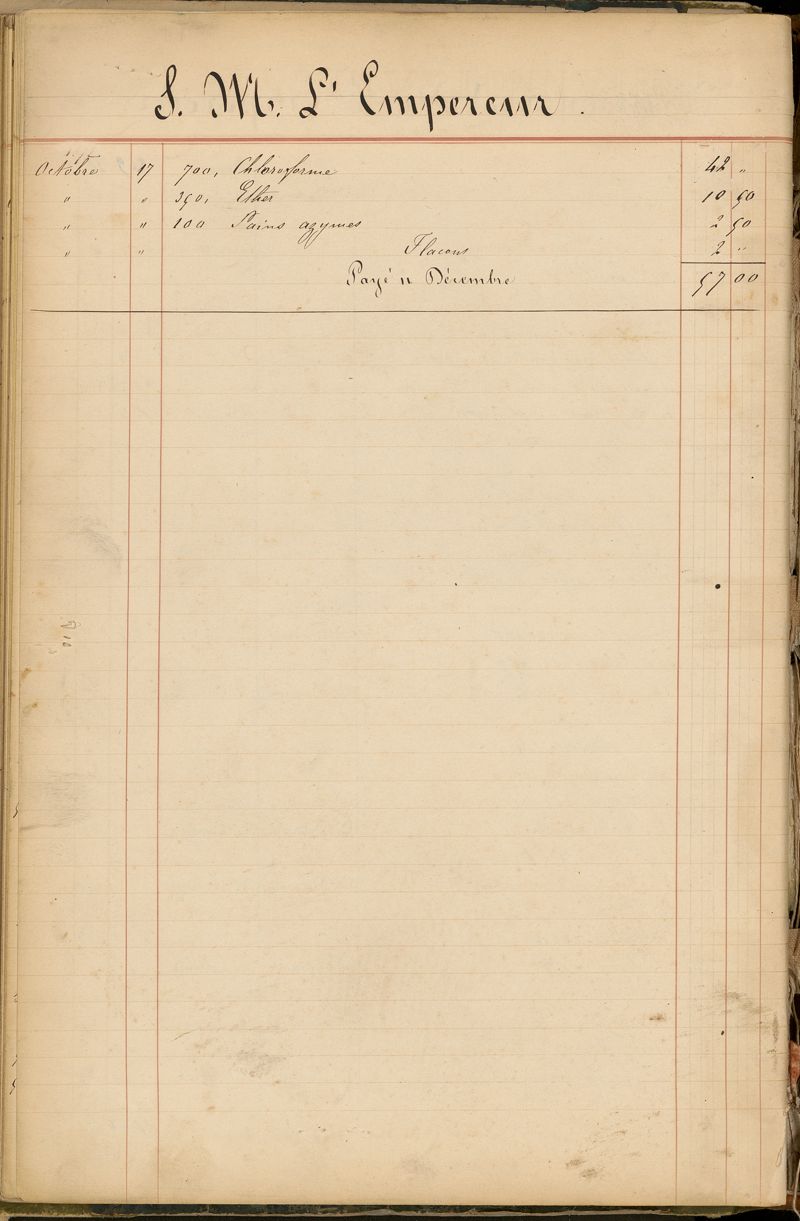 S. M. L'Empereur.
Octobre 17 700, Chloroforme 42 "
" " 350, Ether 10 50
" " 100 Pains azymes 2 50
" " Flacons 2 "
Payé 11 Décembre 57 00